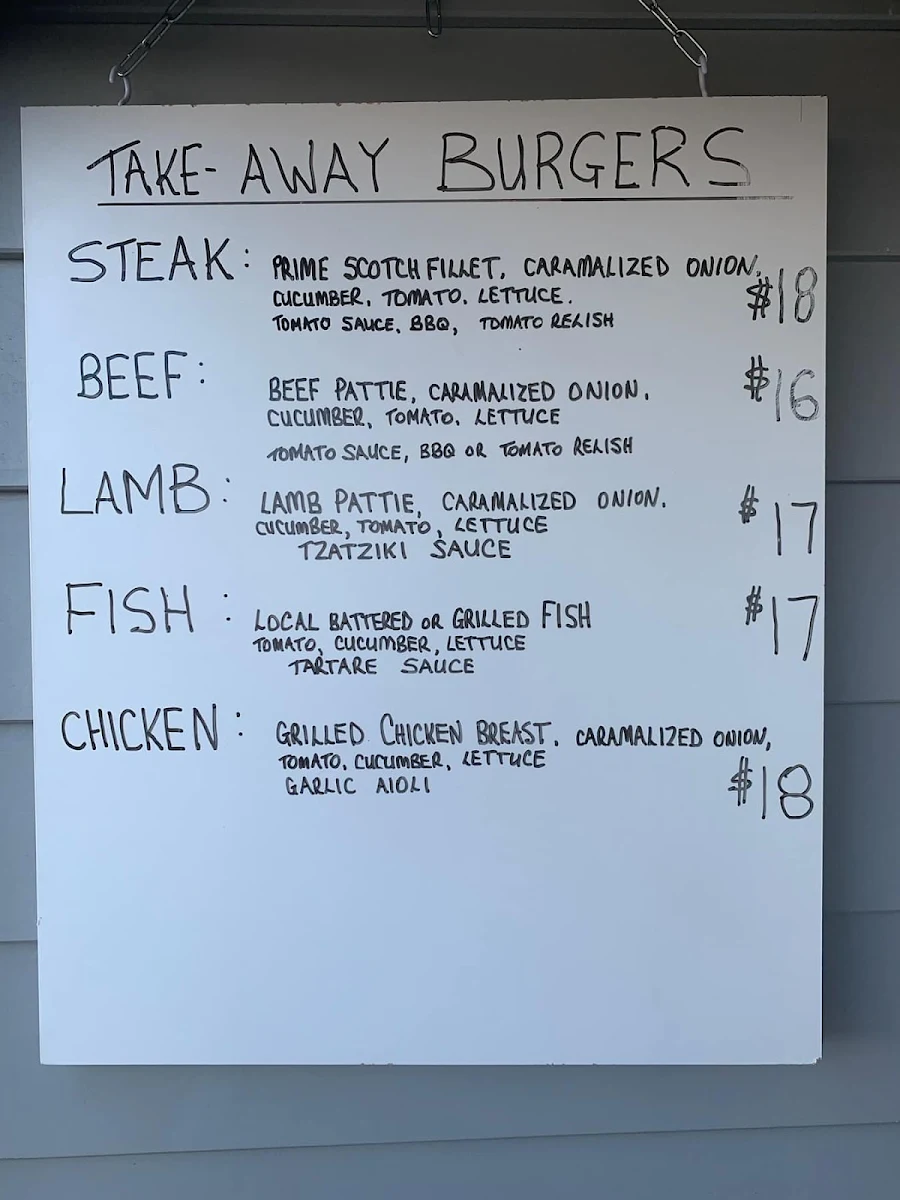 TAKE-AWAY BURGERS
STEAK: PRIME SCOTCH FILLET, CARAMALIZED ONION,
CUCUMBER, TOMATO, LETTUCE.
$18
TOMATO SAUCE, BBQ, TOMATO RELISH
BEEF: BEEF PATTIE, CARAMALIZED ONION,
$16
CUCUMBER, TOMATO, LETTUCE
TOMATO SAUCE, BBQ OR TOMATO RELISH
LAMB: LAMB PATTIE, CARAMALIZED ONION.
$17
CUCUMBER, TOMATO, LETTUCE
TZATZIKI SAUCE
FISH: LOCAL BATTERED OR GRILLED FISH
$17
TOMATO, CUCUMBER, LETTUCE
TARTARE SAUCE
CHICKEN: GRILLED CHICKEN BREAST, CARAMALIZED ONION,
TOMATO, CUCUMBER, LETTUCE
GARLIC AIOLI
$18